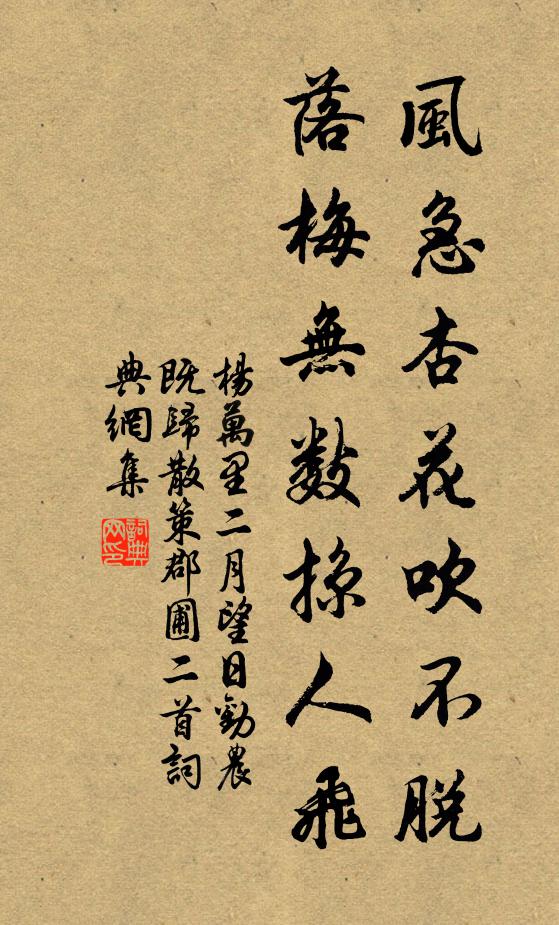 風急杏花吹不脫
落梅無數掠人飛
楊萬里二月望日勸農
既歸散策郡圃二首詞
典網集
詞典网印